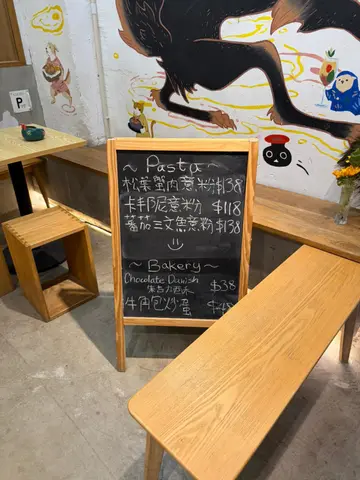 ~ Pasta ~
松葉蟹肉意粉$138
卡邦尼意粉 $118
蕃茄三文魚意粉$138
~ Bakery ~
Chocolate Danish
$38
牛角包炒蛋 $48
P